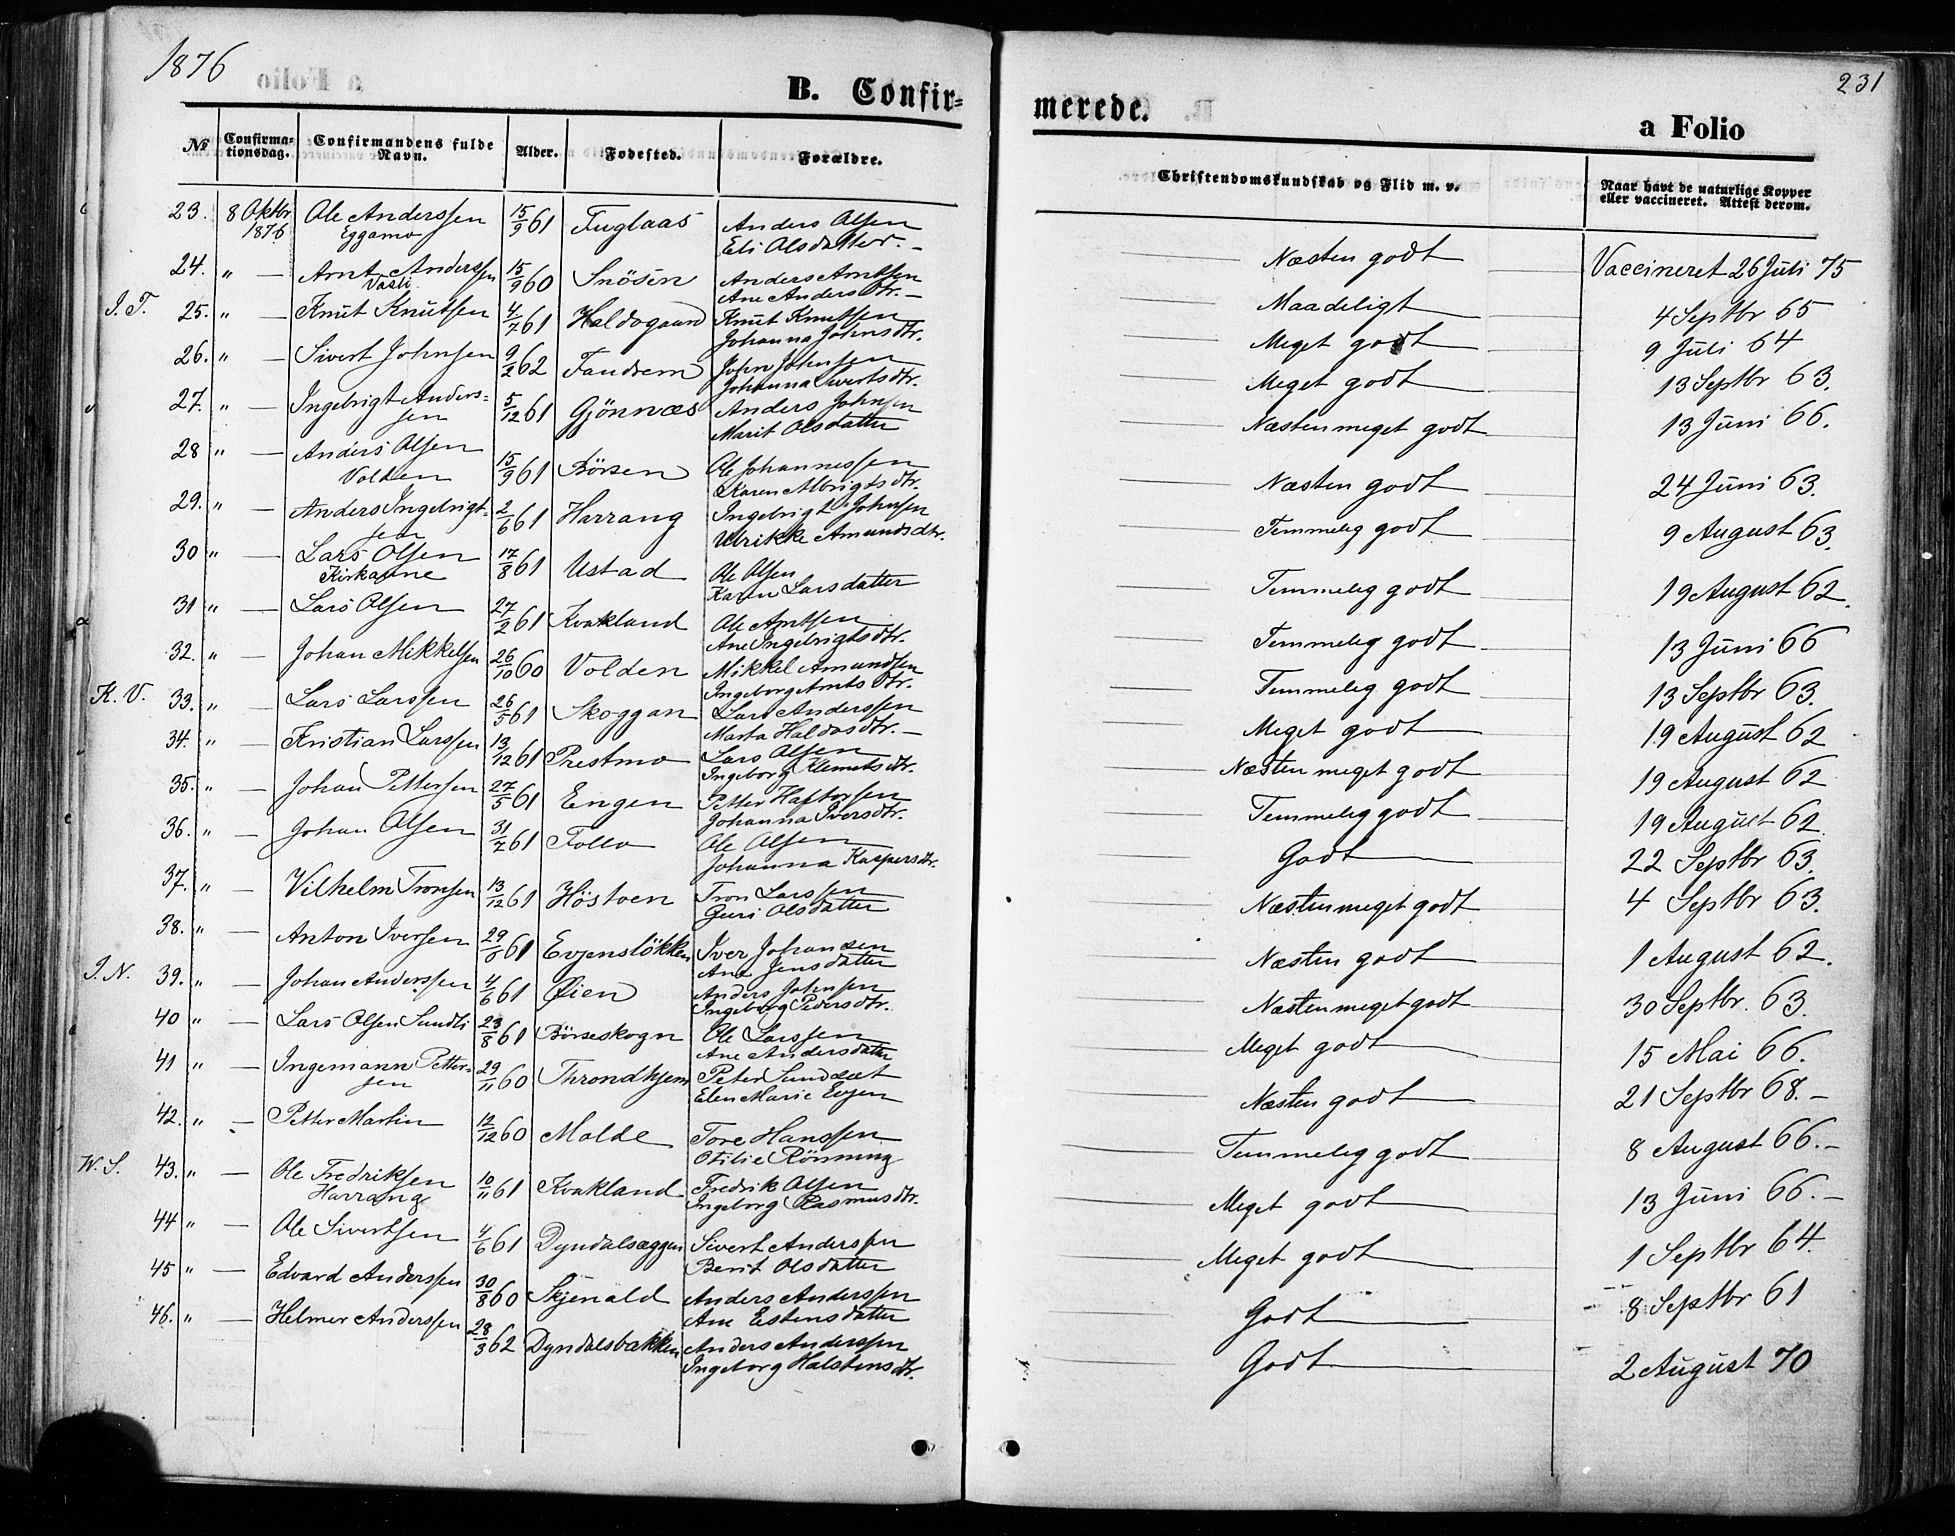 1876
231
B. Confir-
merede.
a Folio
№ Confirma-tionsdag. Confirmandens fulde Navn. Alder. Fødested. Forældre. Christendomskundskab og Flid m. v. Naar havt de naturlige Kopper eller vaccineret. Attest derom.
23. 8 Oktbr Ole Anderssen 15/9 61 Fuglaas Anders Olsen Næsten godt Vaccineret 26 Juli 75
1876 Eggamo Eli Olsdatter. —
24. " — Arnt Anderssen 15/9 60 Snösen Anders Arntsen Maadeligt 4 Septbr 65
Vasli Ane Andersdtr. —
I. T. 25. " — Knut Knutsen 4/7 61 Haldogaard Knut Knutsen Meget godt 9 Juli 64
Johanna Johnsdtr.
26. " — Sivert Johnsen 9/2 62 Fandrem John Johnsen Meget godt 13 Septbr 63.
Johanna Sivertsdtr.
27. " — Ingebrigt Anders- 5/12 61 Gjönnæs Anders Johnsen Næsten meget godt 13 Juni 66.
sen Marit Olsdatter
28 " — Anders Olsen 15/9 61 Börsen Ole Johannessen Næsten godt 24 Juni 63.
Volden Karen Albrigtsdtr.
29. " — Anders Ingebrigt- 2/6 61 Harrang Ingebrigt Johnsen Temmelig godt 9 August 63.
sen Ulrikke Amundsdtr.
30 " — Lars Olsen 17/8 61 Ustad Ole Olsen Temmelig godt 19 August 62.
Kirkaune Karen Larsdatter
31 " — Lars Olsen 27/2 61 Kvakland Ole Arntsen Temmelig godt 13 Juni 66
Ane Ingebrigtsdtr.
32. " — Johan Mikkelsen 26/10 60 Volden Mikkel Amundsen Temmelig godt 13 Septbr 63.
Ingeborg Arntsdtr.
K. V. 33. " — Lars Larssen 26/5 61 Skoggan Lars Anderssen Meget godt 19 August 62
Marta Haldosdtr. —
34. " — Kristian Larssen 13/12 61 Prestmo Lars Olsen Næsten meget godt 19 August 62
Ingeborg Klemetsdtr.
35. " — Johan Pettersen 27/5 61 Engen Petter Haftorsen Temmelig godt 19 August 62.
Johanna Iversdtr.
36. " — Johan Olsen 31/7 61 Follo Ole Olsen Godt 22 Septbr 63.
Johanna Kaspersdtr.
37. " — Vilhelm Tronsen 13/12 61 Höstoen Tron Larssen Næsten meget godt 4 Septbr 63.
Guri Olsdatter
38. " — Anton Iversen 61 Evjenslökken Iver Johansen Næsten godt 1 August 62.
Ane Jensdatter
I. N. 39. " — Johan Anderssen 4/6 61 Øien Anders Johnsen Næsten meget godt 30 Septbr. 63.
Ingeborg Pedersdtr.
40 " — Lars Olsen Sundli 23/8 61 Börseskogn Ole Larssen Meget godt 15 Mai 66.
Ane Andersdatter
41 " — Ingemann Petter- 29/11 60 Throndhjem Peter Sundset Næsten godt 21 Septbr 68. —
sen Elen Marie Evjen
42. " — Petter Martin 12/12 60 Molde Tore Hanssen Temmelig godt 8 August 66. —
Otilie Rönning
W. S. 43. " — Ole Fredriksen 10/11 61 Kvakland Fredrik Olsen Meget godt 13 Juni 66. —
Harrang Ingeborg Rasmusdtr.
44 " — Ole Sivertsen 4/6 61 Dyndalsæggen Sivert Anderssen Meget godt 1 Septbr 64.
Berit Olsdatter
45 " — Edvard Anderssen 30/8 60 Skjenald Anders Anderssen Godt 8 Septbr 61
Ane Estensdatter
46. " — Helmer Anderssen 28/3 62 Dyndalsbakken Anders Anderssen Godt 2 August 70
Ingeborg Halstensdtr.